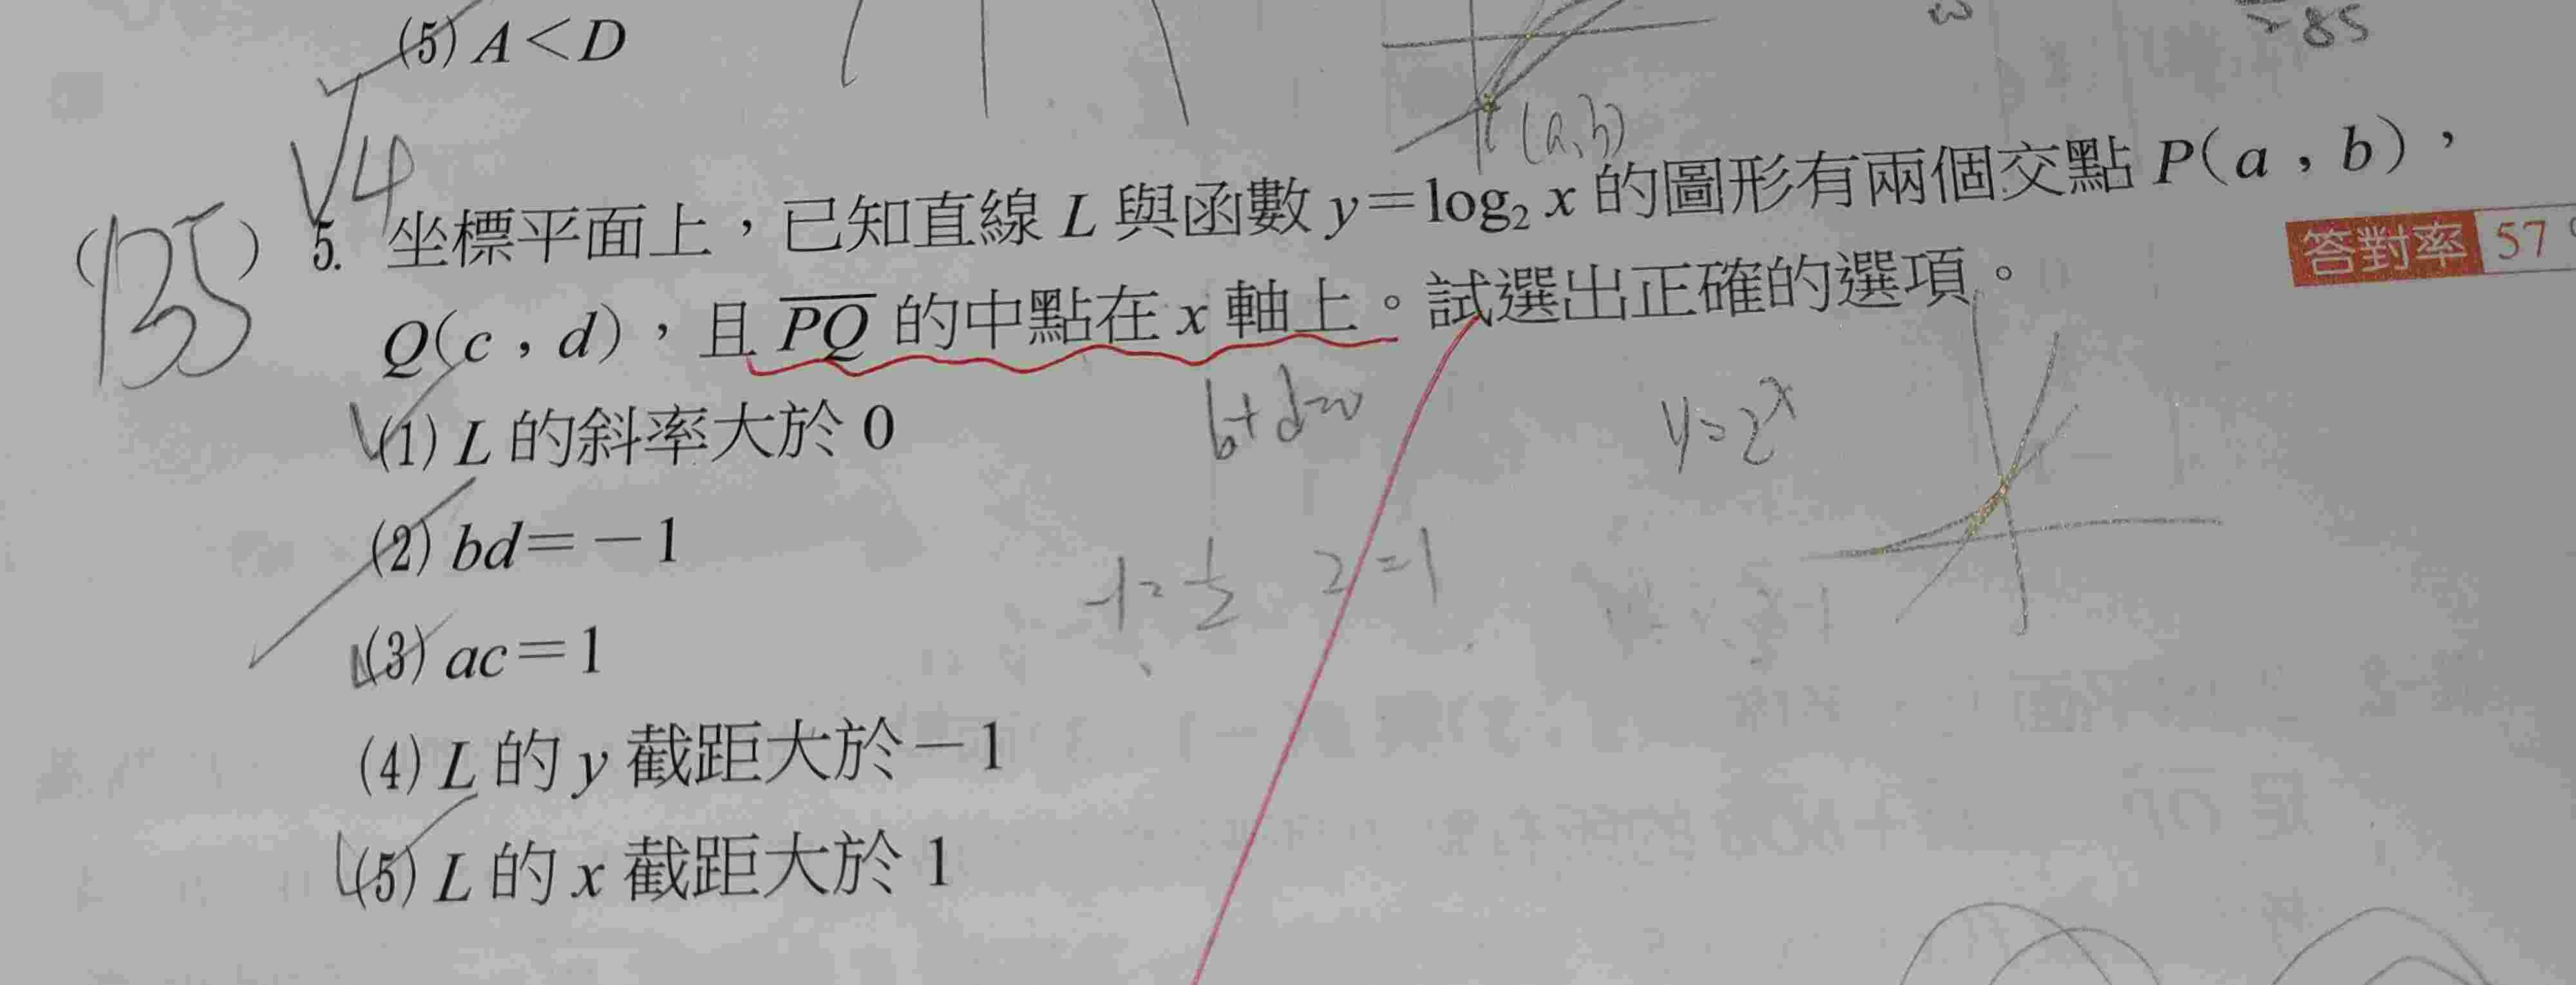 (5) A<D
>85
(a,b)
4
(135) 5. 坐標平面上，已知直線 L 與函數 y=log₂ x 的圖形有兩個交點 P(a，b)，
答對率 57
Q(c，d)，且 PQ 的中點在 x 軸上。試選出正確的選項。
b+d=0
y=2ˣ
(1) L 的斜率大於 0
(2) bd=－1
2=1
(3) ac=1
(4) L 的 y 截距大於－1
(5) L 的 x 截距大於 1